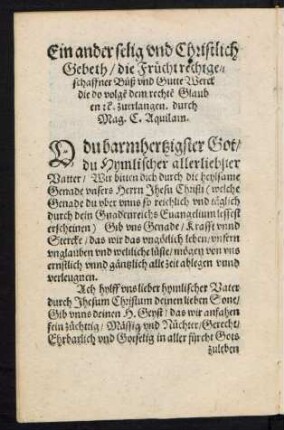 Ein ander selig vnd Christlich
Gebeth / die Frücht rechtge-
schaffner Büß vnd Gutte Werck
die do volgẽ dem rechtẽ Glaub
en ꝛc. zurlangen. durch
Mag. C. Aquilam.
O du barmhertzigster Got /
du Hymlischer allerliebster
Vatter / Wir bitten dich durch die heylsame
Genade vnsers Herrn Jhesu Christi (welche
Genade du vber vnns so reichlich vnd täglich
durch dein Gnadenreichs Euangelium lessest
erscheinen) Gib vns Genade / Krafft vnnd
Stercke / das wir das vngötlich leben / vnsern
vnglauben vnd weltliche lüste / mögen von vns
ernstlich vnnd gäntzlich alle zeit ablegen vnnd
verleugnen.
Ach hylff vns lieber hymlischer Vater
durch Jhesum Christum deinen lieben Sone /
Gib vnns deinen H. Geyst / das wir anfahen
sein züchtig / Mässig vnd Nüchter / Gerecht /
Ehrbarlich vnd Gotselig in aller fürcht Gots
zuleben